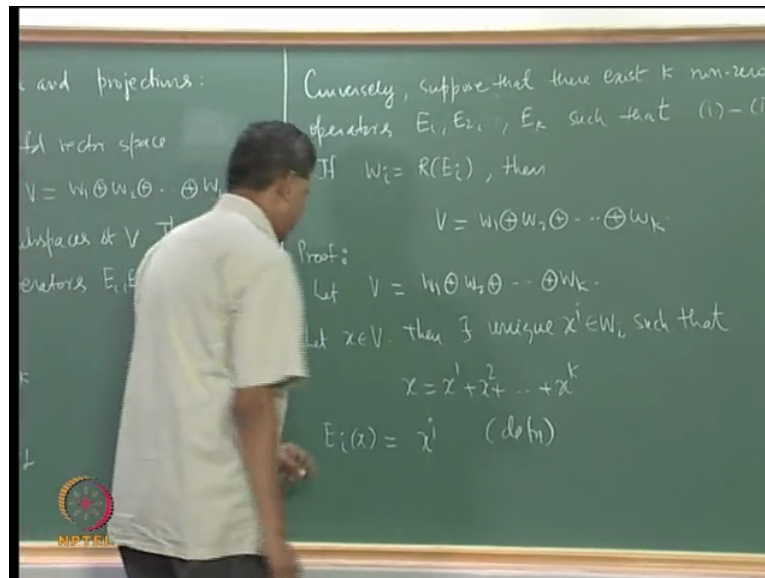 and projections:
fd vector space
V = W₁ ⊕ W₂ ⊕ ... ⊕ W
subspaces of V
erators E₁, E
k
Conversely, suppose that there exist k non-zero
operators E₁, E₂, , E_k such that (i) - (i
If W_i = R(E_i), then
V = W₁ ⊕ W₂ ⊕ ... ⊕ W_k.
Proof:
Let V = W₁ ⊕ W₂ ⊕ ... ⊕ W_k.
Let x ∈ V. Then ∃ unique xⁱ ∈ W_i such that
x = x¹ + x² + ... + xᵏ
E_i(x) = xⁱ (defn)
NPTEL